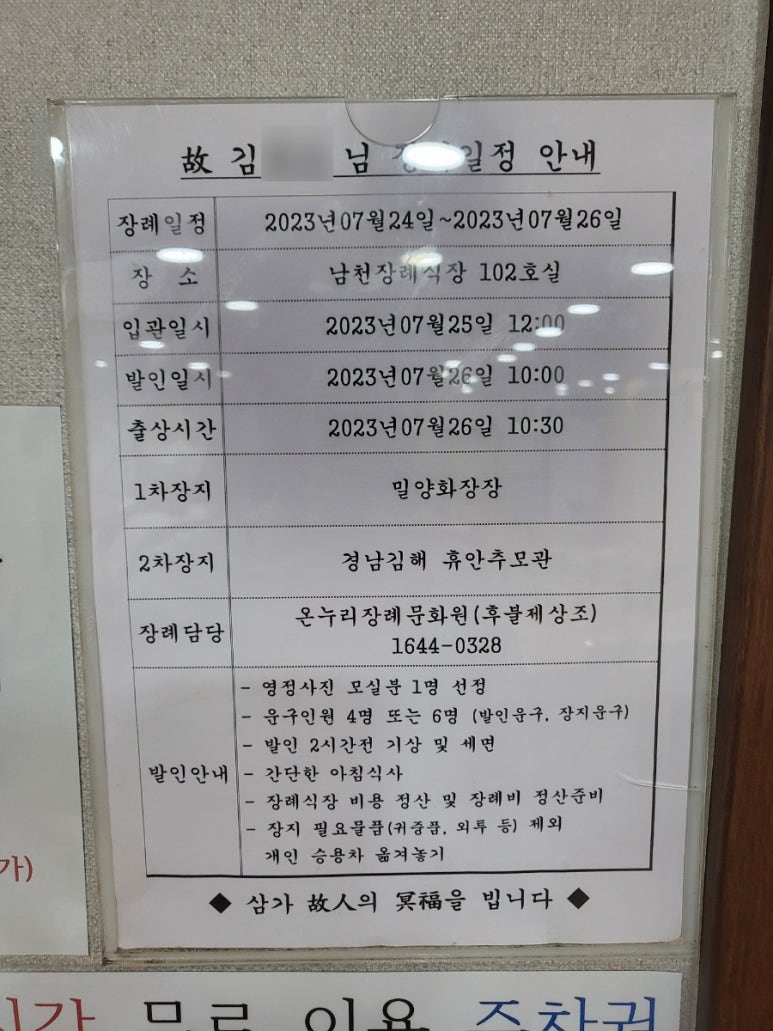 故 김 님 일정 안내
장례일정 2023년07월24일~2023년07월26일
장 소 남천장례식장 102호실
입관일시 2023년07월25일 12:00
발인일시 2023년07월26일 10:00
출상시간 2023년07월26일 10:30
1차장지 밀양화장장
2차장지 경남김해 휴안추모관
장례담당 온누리장례문화원(후불제상조)
1644-0328
발인안내
- 영정사진 모실분 1명 선정
- 운구인원 4명 또는 6명 (발인운구, 장지운구)
- 발인 2시간전 기상 및 세면
- 간단한 아침식사
- 장례식장 비용 정산 및 장례비 정산준비
- 장지 필요물품(귀중품, 외투 등) 제외
개인 승용차 옮겨놓기
◆ 삼가 故人의 冥福을 빕니다 ◆
가)
시간 무료 이용 주차권